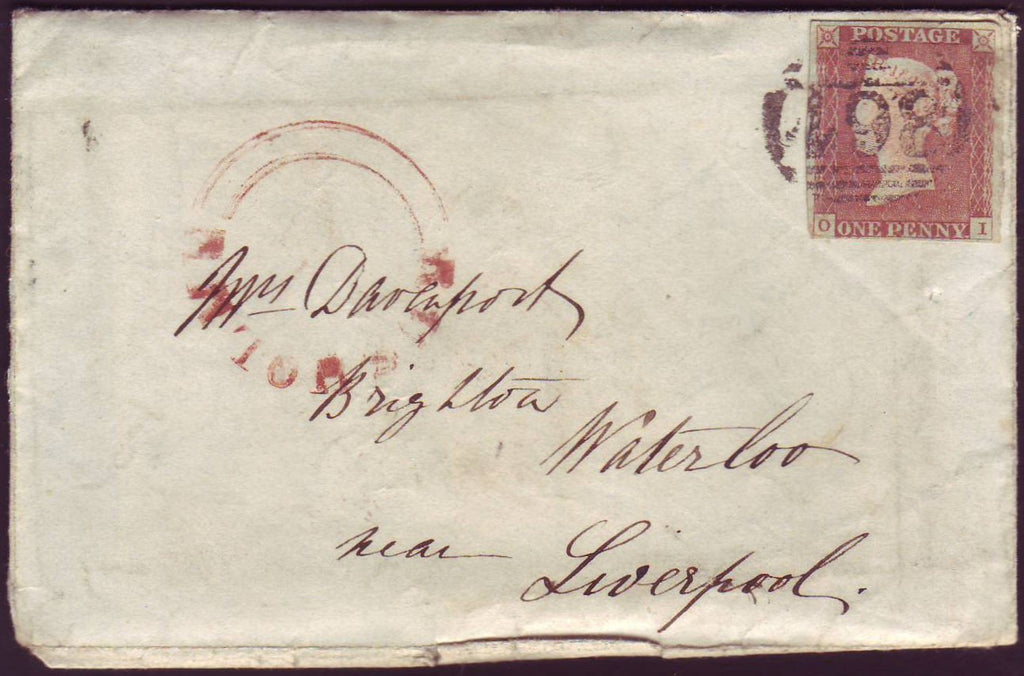 POSTAGE
498
O ONE PENNY I
Mrs Davenport
Brighton
Waterloo
near
Liverpool.